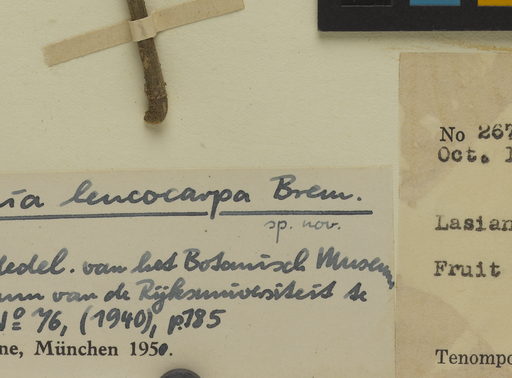 ia leucocarpa Brem.
sp. nov.
edel. van het Botanisch Museum
van de Rijksuniversiteit te
No 76, (1940), p.185
ne, München 1950.
No 267
Oct. 1
Lasian
Fruit
Tenompo